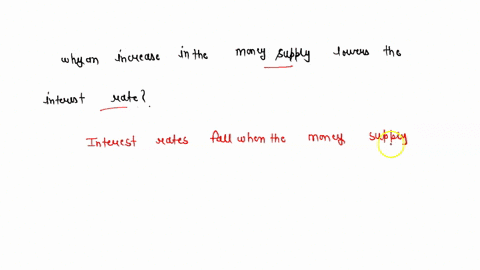 why an increase in the money supply lowers the
interest rate?
Interest rates fall when the money supply